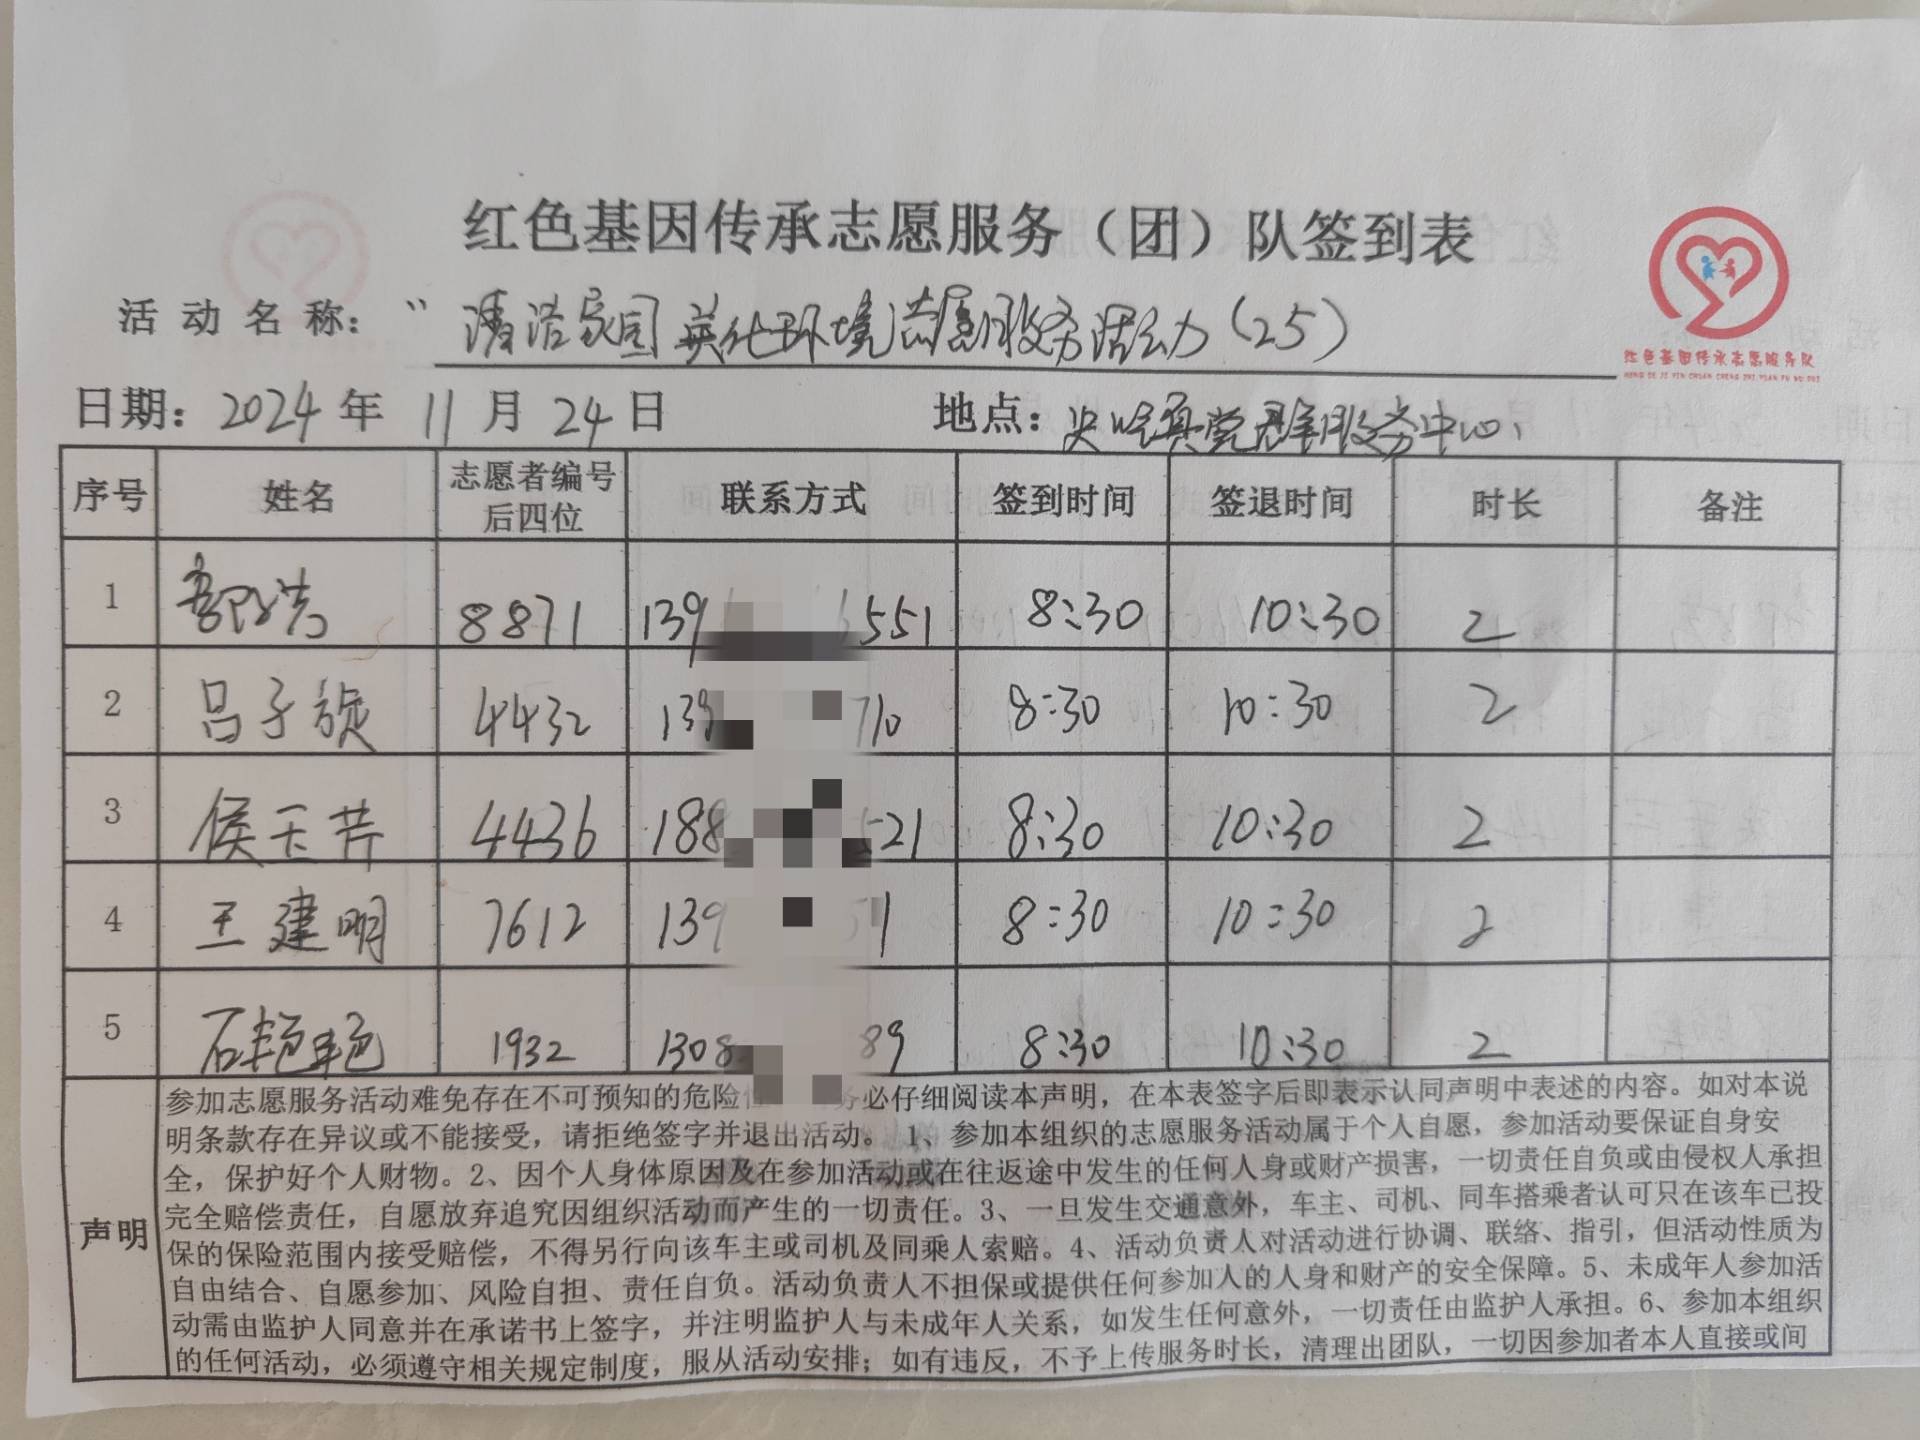 红色基因传承志愿服务（团）队签到表
活动名称： “清洁家园 美化环境志愿服务活动（25）
红色基因传承志愿服务队
HONG SE JI YIN CHUAN CHENG ZHI YUAN FU WU DUI
日期：2024年 11月 24日 地点： 镇党群服务中心、
序号 姓名 志愿者编号后四位 联系方式 签到时间 签退时间 时长 备注
1 浩 8871 139 551 8:30 10:30 2
2 吕子旋 4432 139 710 8:30 10:30 2
3 侯玉芹 4436 188 521 8:30 10:30 2
4 王建明 7612 139 1 8:30 10:30 2
5 石艳艳 1932 1308 89 8:30 10:30 2
声明
参加志愿服务活动难免存在不可预知的危险 必仔细阅读本声明，在本表签字后即表示认同声明中表述的内容。如对本说
明条款存在异议或不能接受，请拒绝签字并退出活动。 1、参加本组织的志愿服务活动属于个人自愿，参加活动要保证自身安
全，保护好个人财物。2、因个人身体原因及在参加活动或在往返途中发生的任何人身或财产损害，一切责任自负或由侵权人承担
完全赔偿责任，自愿放弃追究因组织活动而产生的一切责任。3、一旦发生交通意外，车主、司机、同车搭乘者认可只在该车已投
保的保险范围内接受赔偿，不得另行向该车主或司机及同乘人索赔。4、活动负责人对活动进行协调、联络、指引，但活动性质为
自由结合、自愿参加、风险自担、责任自负。活动负责人不担保或提供任何参加人的人身和财产的安全保障。5、未成年人参加活
动需由监护人同意并在承诺书上签字，并注明监护人与未成年人关系，如发生任何意外，一切责任由监护人承担。6、参加本组织
的任何活动，必须遵守相关规定制度，服从活动安排；如有违反，不予上传服务时长，清理出团队，一切因参加者本人直接或间